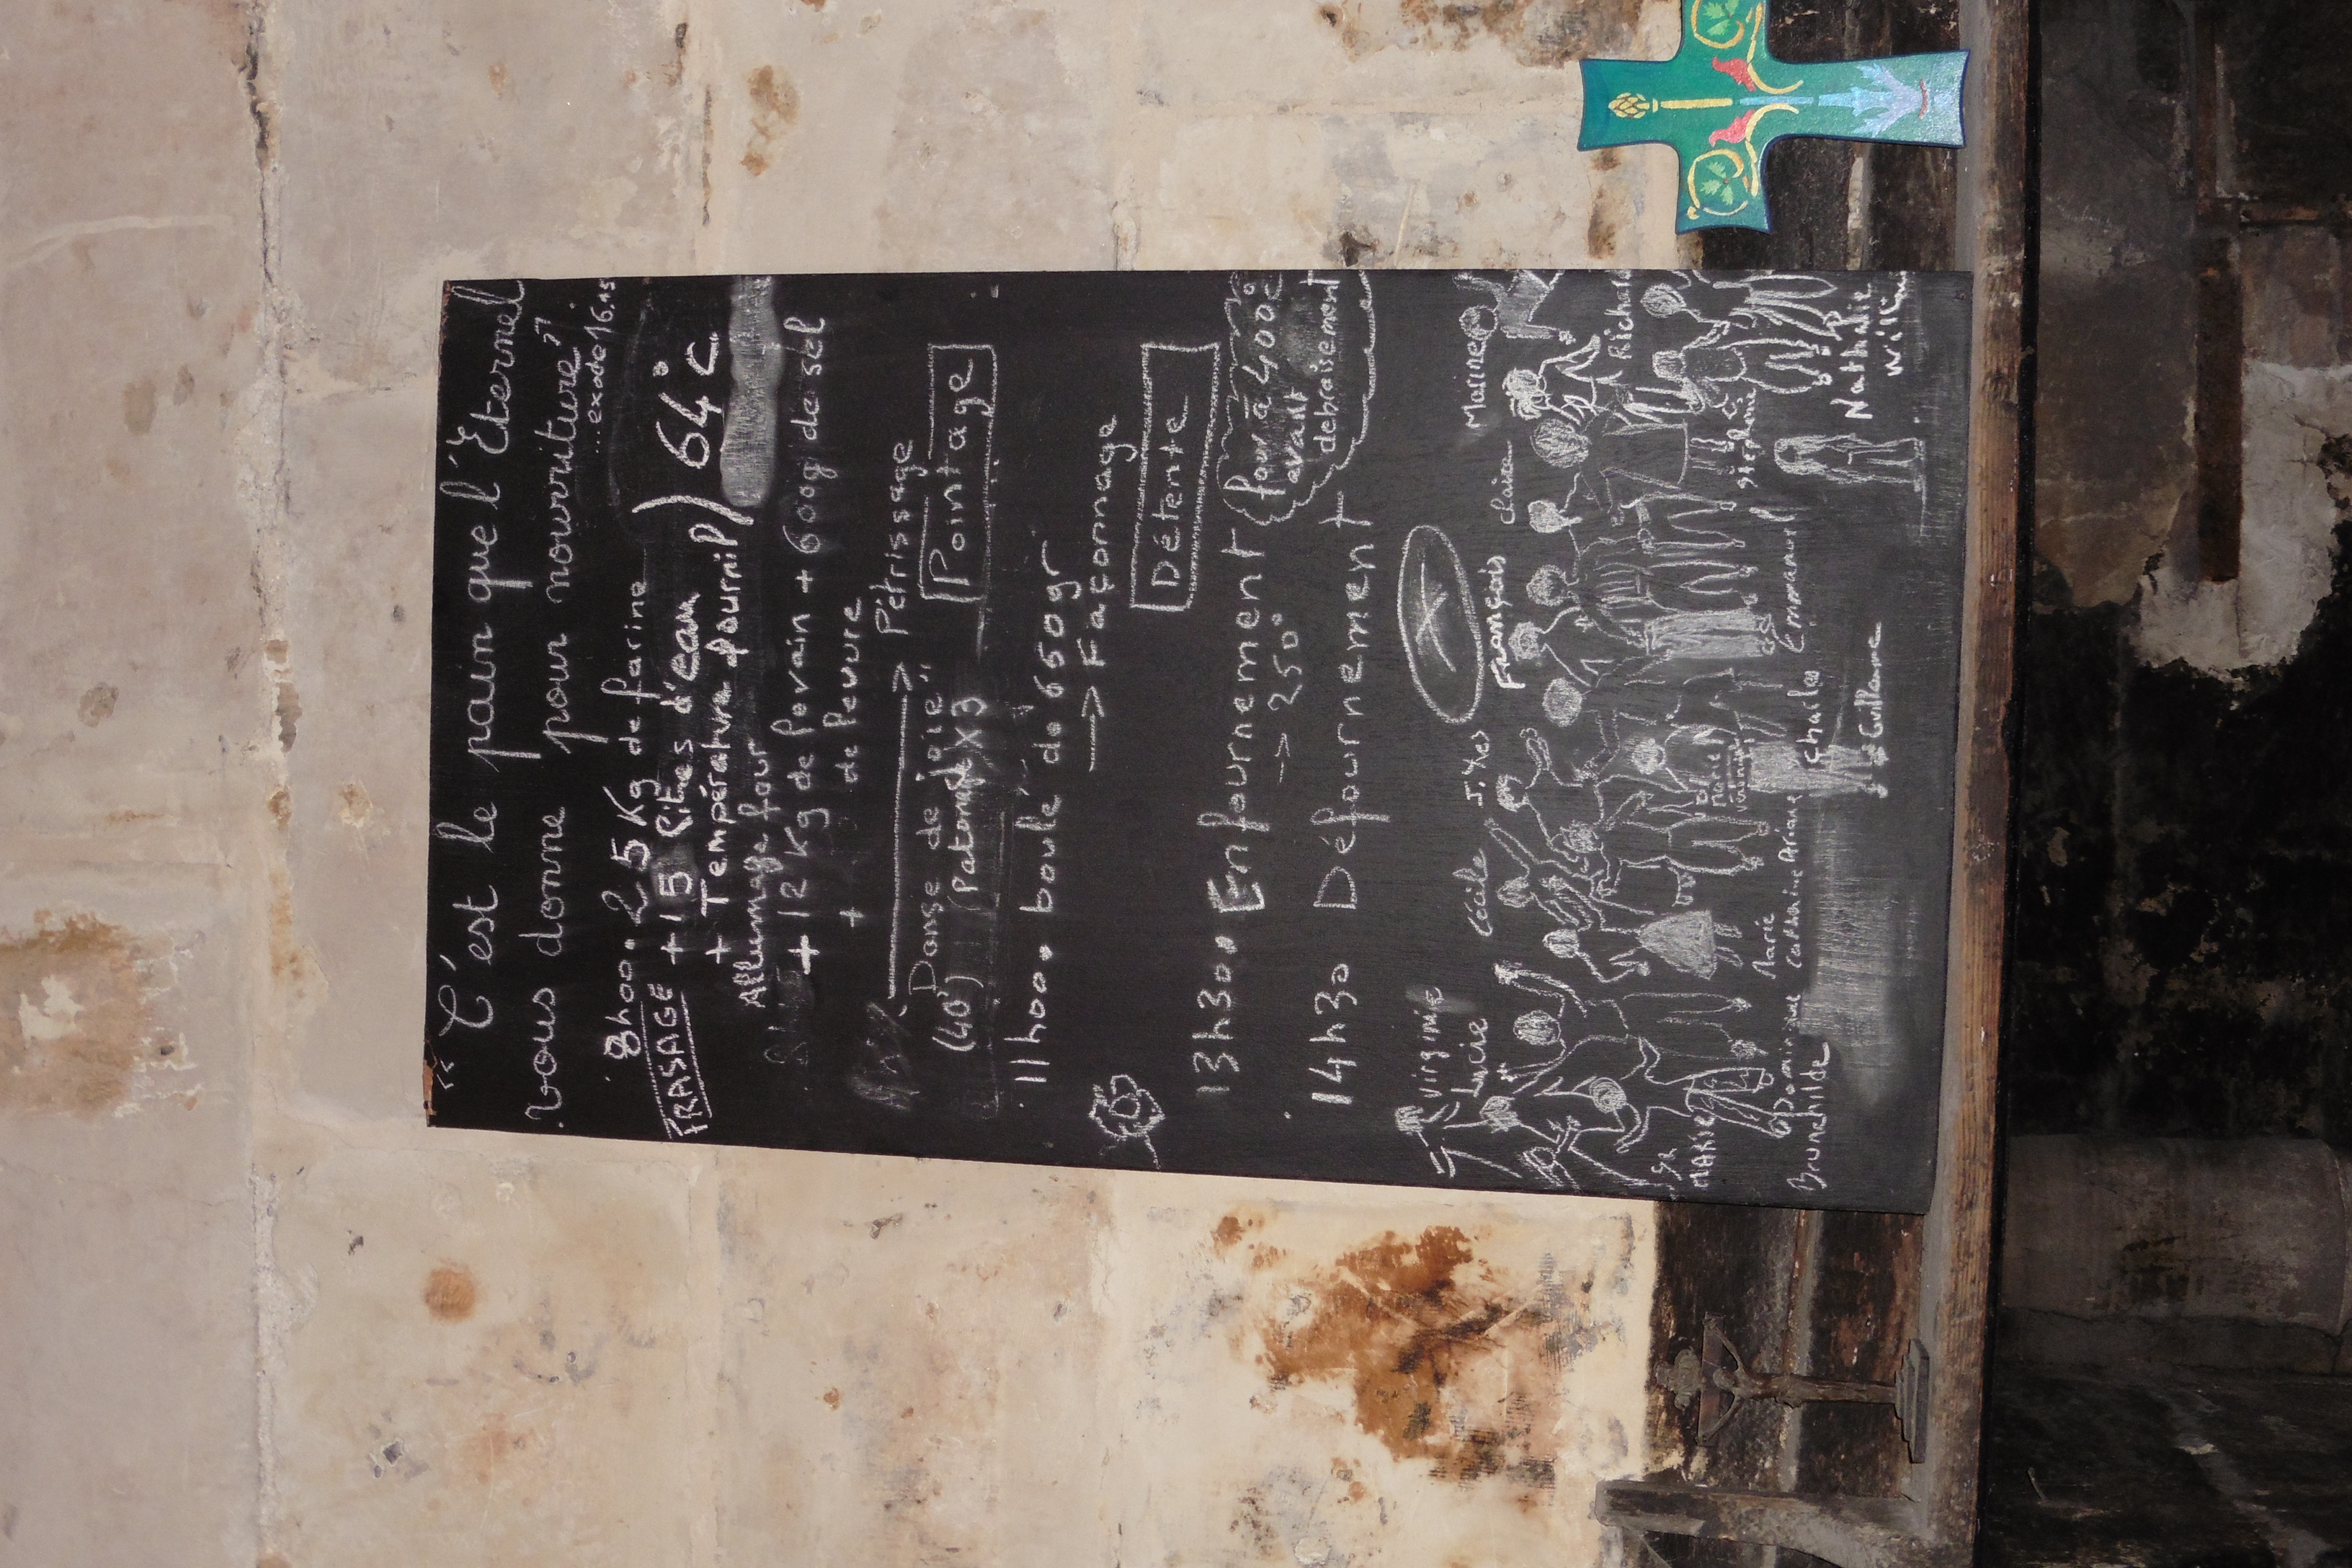 "C'est le pain que l'Éternel
vous donne pour nourriture"
...exode 16.15
8h00 • 25 Kg de farine
FRASAGE + 15 lites d'eau
+ Température fournil) 64°C
Allumage four
+ 12 Kg de levain + 600g de sel
+ de levure
→ Pétrissage
"Danse de joie"
(40') (Patonage x 3
Pointage
11h00 • boulé de 650gr
→ Façonnage
Détente
13h30 • Enfournement
four à 400°C
avant
debraisement
→ 250°
14h30 Défournement
Virginie
Lucie
Cécile
J. Yves
François
Claire
Marine
Richard
MARIE
Dominique
Brunehilde
Marie
Catherine
Ariane
Charles
Emmanuel
Stéphanie
Nathalie
Guillaume